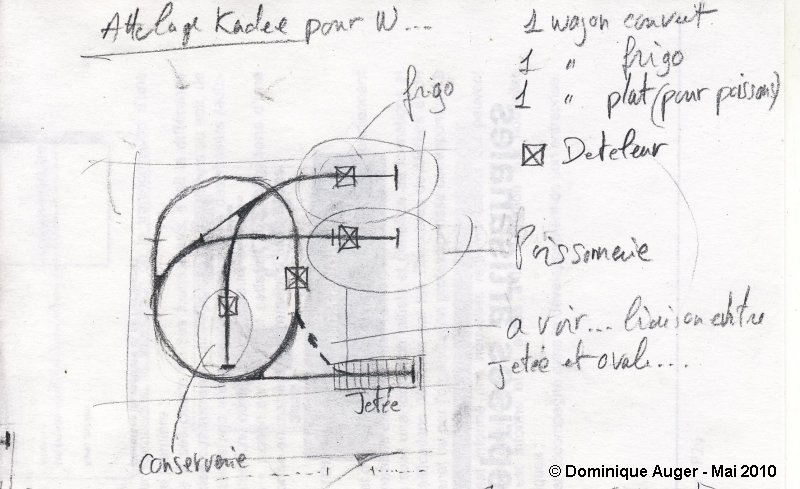 Attelage Kadee pour W...
1 wagon couvert
1 " frigo
1 " plat (pour poissons)
Deteleur
frigo
Poissonnerie
a voir... liaison entre
Jetée et ovale....
Jetée
Conserverie
© Dominique Auger - Mai 2010